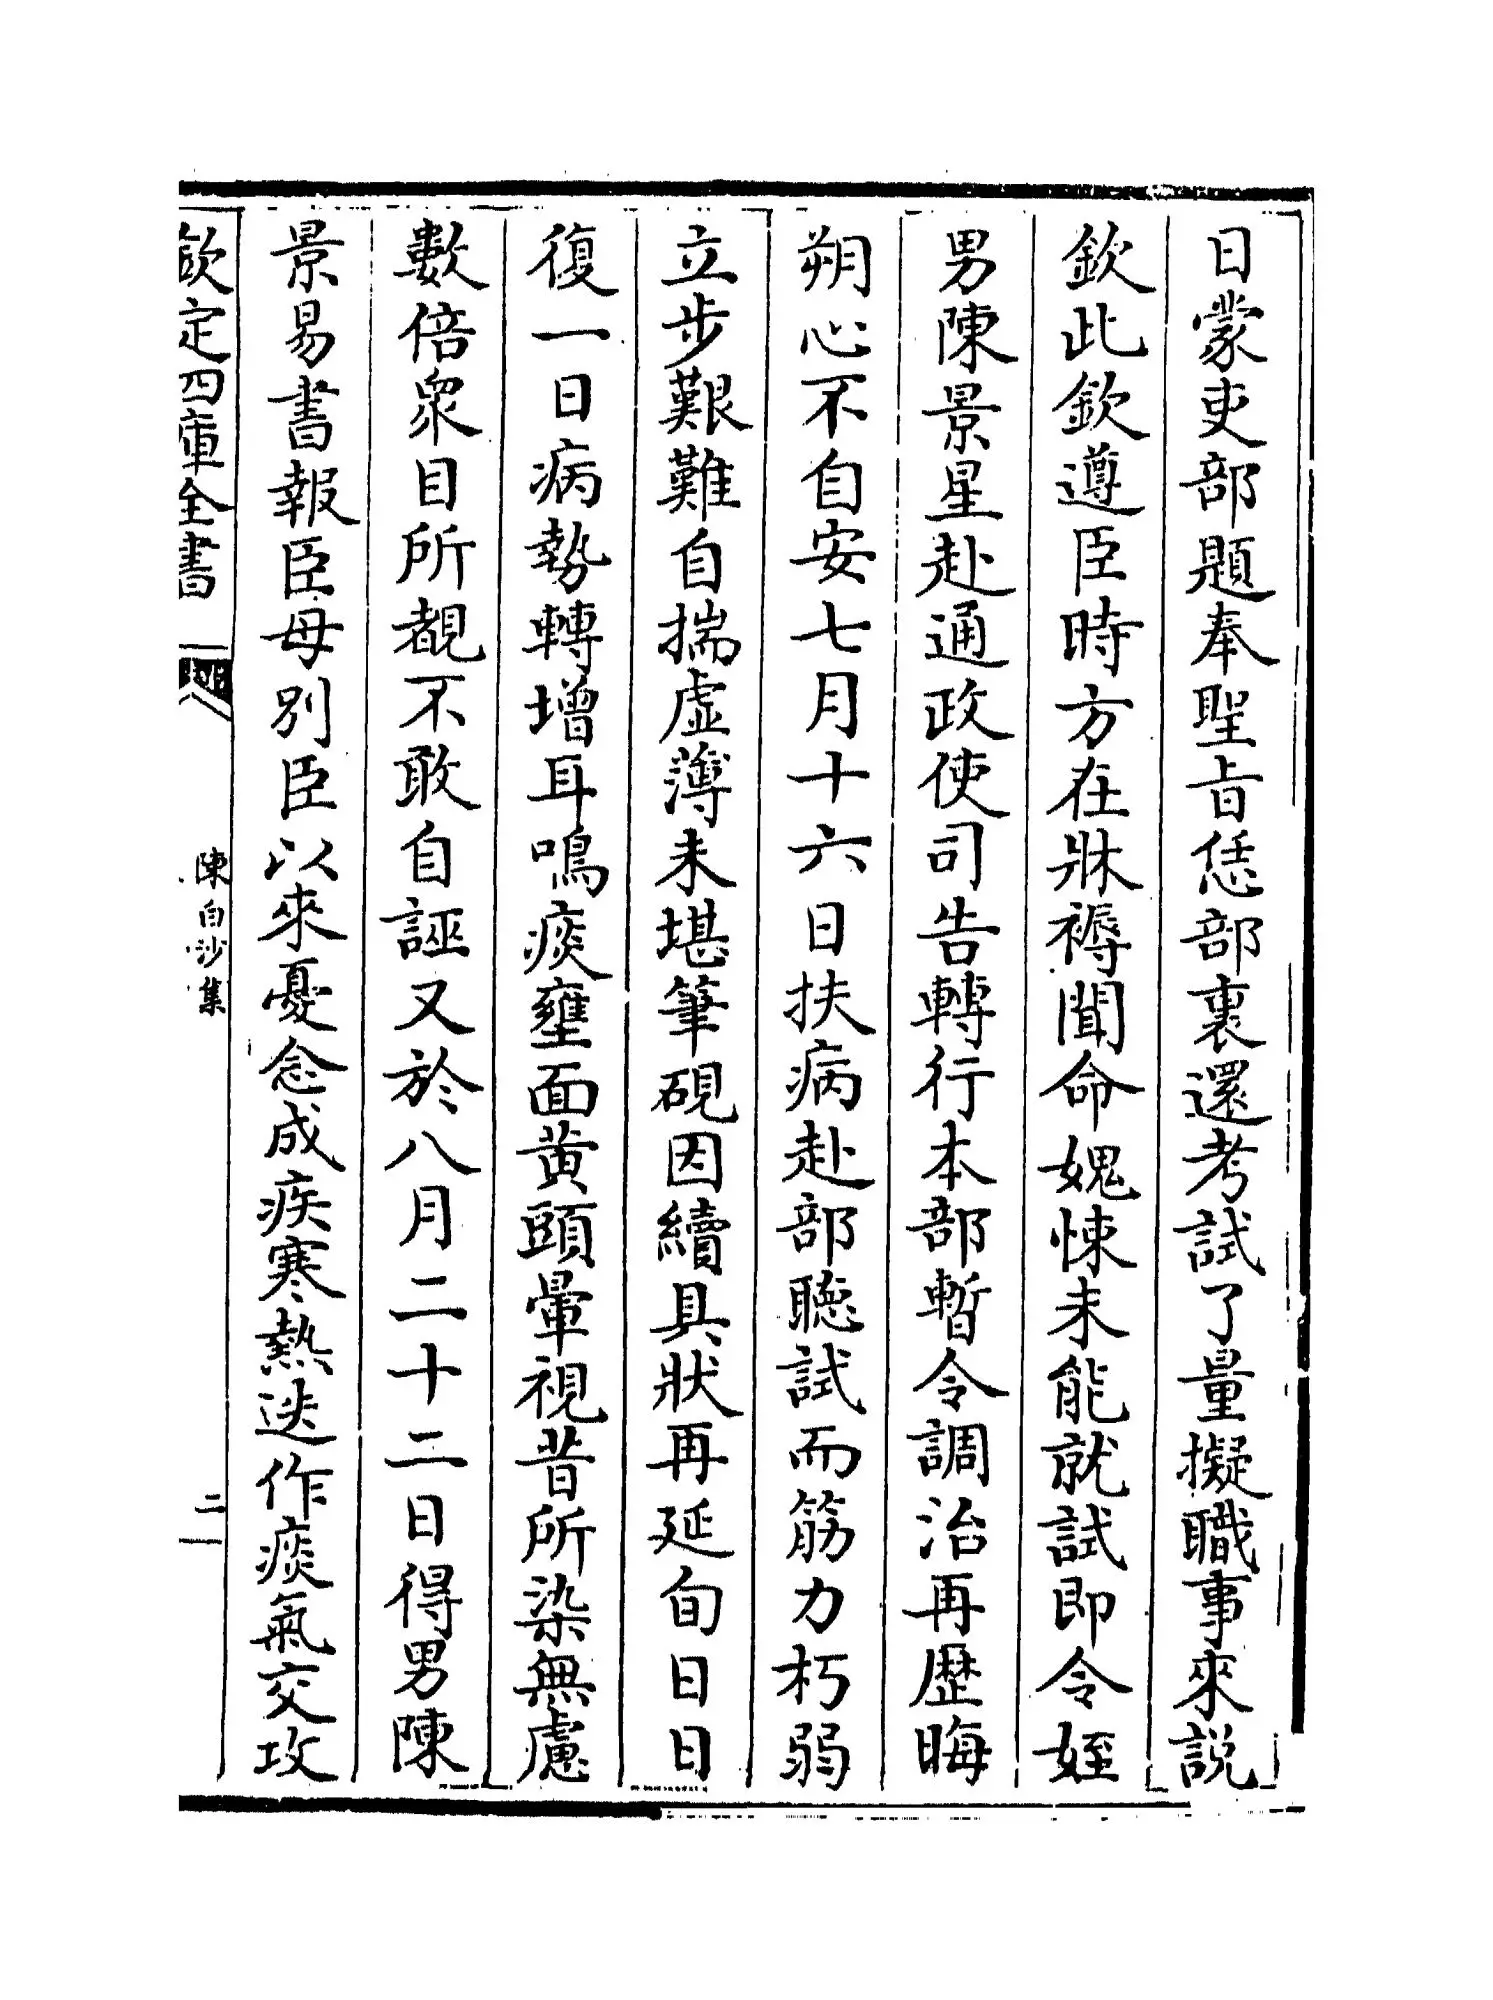 日蒙吏部題奉聖㫖恁部裏還考試了量擬職事來説
欽此欽遵臣時方在牀褥聞命媿悚未能就試即令姪
男陳景星赴通政使司告轉行本部暫令調治再歷晦
朔心不自安七月十六日扶病赴部聽試而筋力朽弱
立步艱難自揣虛薄未堪筆硯因續具狀再延旬日日
復一日病勢轉增耳鳴痰壅面黄頭暈視昔所染無慮
數倍衆目所覩不敢自誣又於八月二十二日得男陳
景易書報臣母别臣以來憂念成疾寒熱迭作痰氣交攻
欽定四庫全書
陳白沙集
二